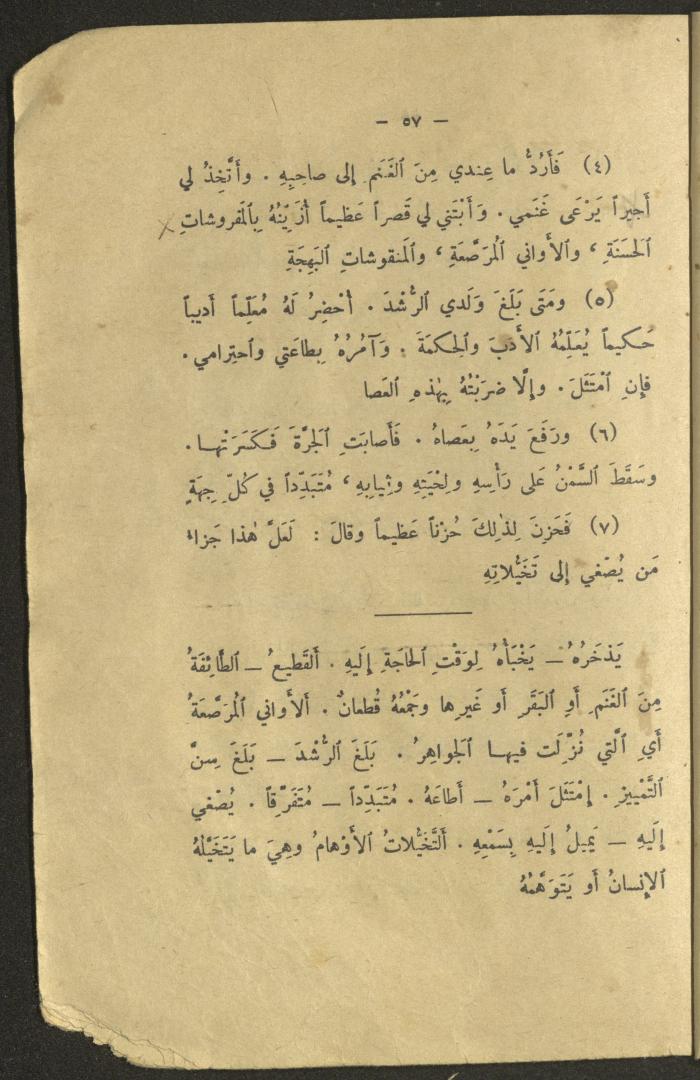 — ٥٧ —
(٤) فَأَرُدُّ ما عِندي مِنَ ٱلغَنَمِ إلى صاحِبِهِ . وأَتَّخِذُ لي
أَجيراً يَرْعَى غَنَمي . وَأَبْتَني لي قَصراً عَظيماً أُزَيِّنُهُ بِالمَفروشاتِ
ٱلحَسَنَةِ ، وٱلأَواني ٱلمُرَصَّعَةِ ، وٱلمَنقوشاتِ ٱلبَهِجَةِ
(٥) ومَتَى بَلَغَ وَلَدي ٱلرُّشْدَ . أُحْضِرُ لَهُ مُعَلِّماً أَديباً
حَكيماً يُعَلِّمُهُ ٱلأَدَبَ وٱلحِكمَةَ . وَآمُرُهُ بِطاعَتي وٱحتِرامي .
فإِنِ ٱمْتَثَلَ . وإلَّا ضرَبْتُهُ بِهٰذِهِ ٱلعَصا
(٦) ورَفَعَ يَدَهُ بِعَصاهُ . فَأَصابَتِ ٱلجَرَّةَ فَكَسَرَتْها .
وسَقَطَ ٱلسَّمْنُ عَلى رَأْسِهِ ولِحْيَتِهِ وثِيابِهِ ، مُتَبَدِّداً في كُلِّ جِهَةٍ
(٧) فَحَزِنَ لِذٰلِكَ حُزْناً عَظيماً وقالَ : لَعَلَّ هٰذا جَزاءُ
مَن يُصْغي إلى تَخَيُّلاتِهِ
يَذخَرُهُ — يَخْبَأُهُ لِوَقْتِ ٱلحاجَةِ إلَيهِ . أَلقَطيعُ — ٱلطَّائِفَةُ
مِنَ ٱلغَنَمِ أَوِ ٱلبَقَرِ أَو غَيرِها وجَمْعُهُ قُطعانٌ . أَلأَواني ٱلمُرَصَّعَةُ
أَيِ ٱلَّتي نُزِّلَت فيها ٱلجَواهِرُ . بَلَغَ ٱلرُّشْدَ — بَلَغَ سِنَّ
ٱلتَّمْييزِ . إمْتَثَلَ أَمْرَهُ — أَطاعَهُ . مُتَبَدِّداً — مُتَفَرِّقاً . يُصْغي
إلَيهِ — يَميلُ إلَيهِ بِسَمْعِهِ . أَلتَّخَيُّلاتُ ٱلأَوْهامُ وهِيَ ما يَتَخَيَّلُهُ
ٱلإِنسانُ أَو يَتَوَهَّمُهُ